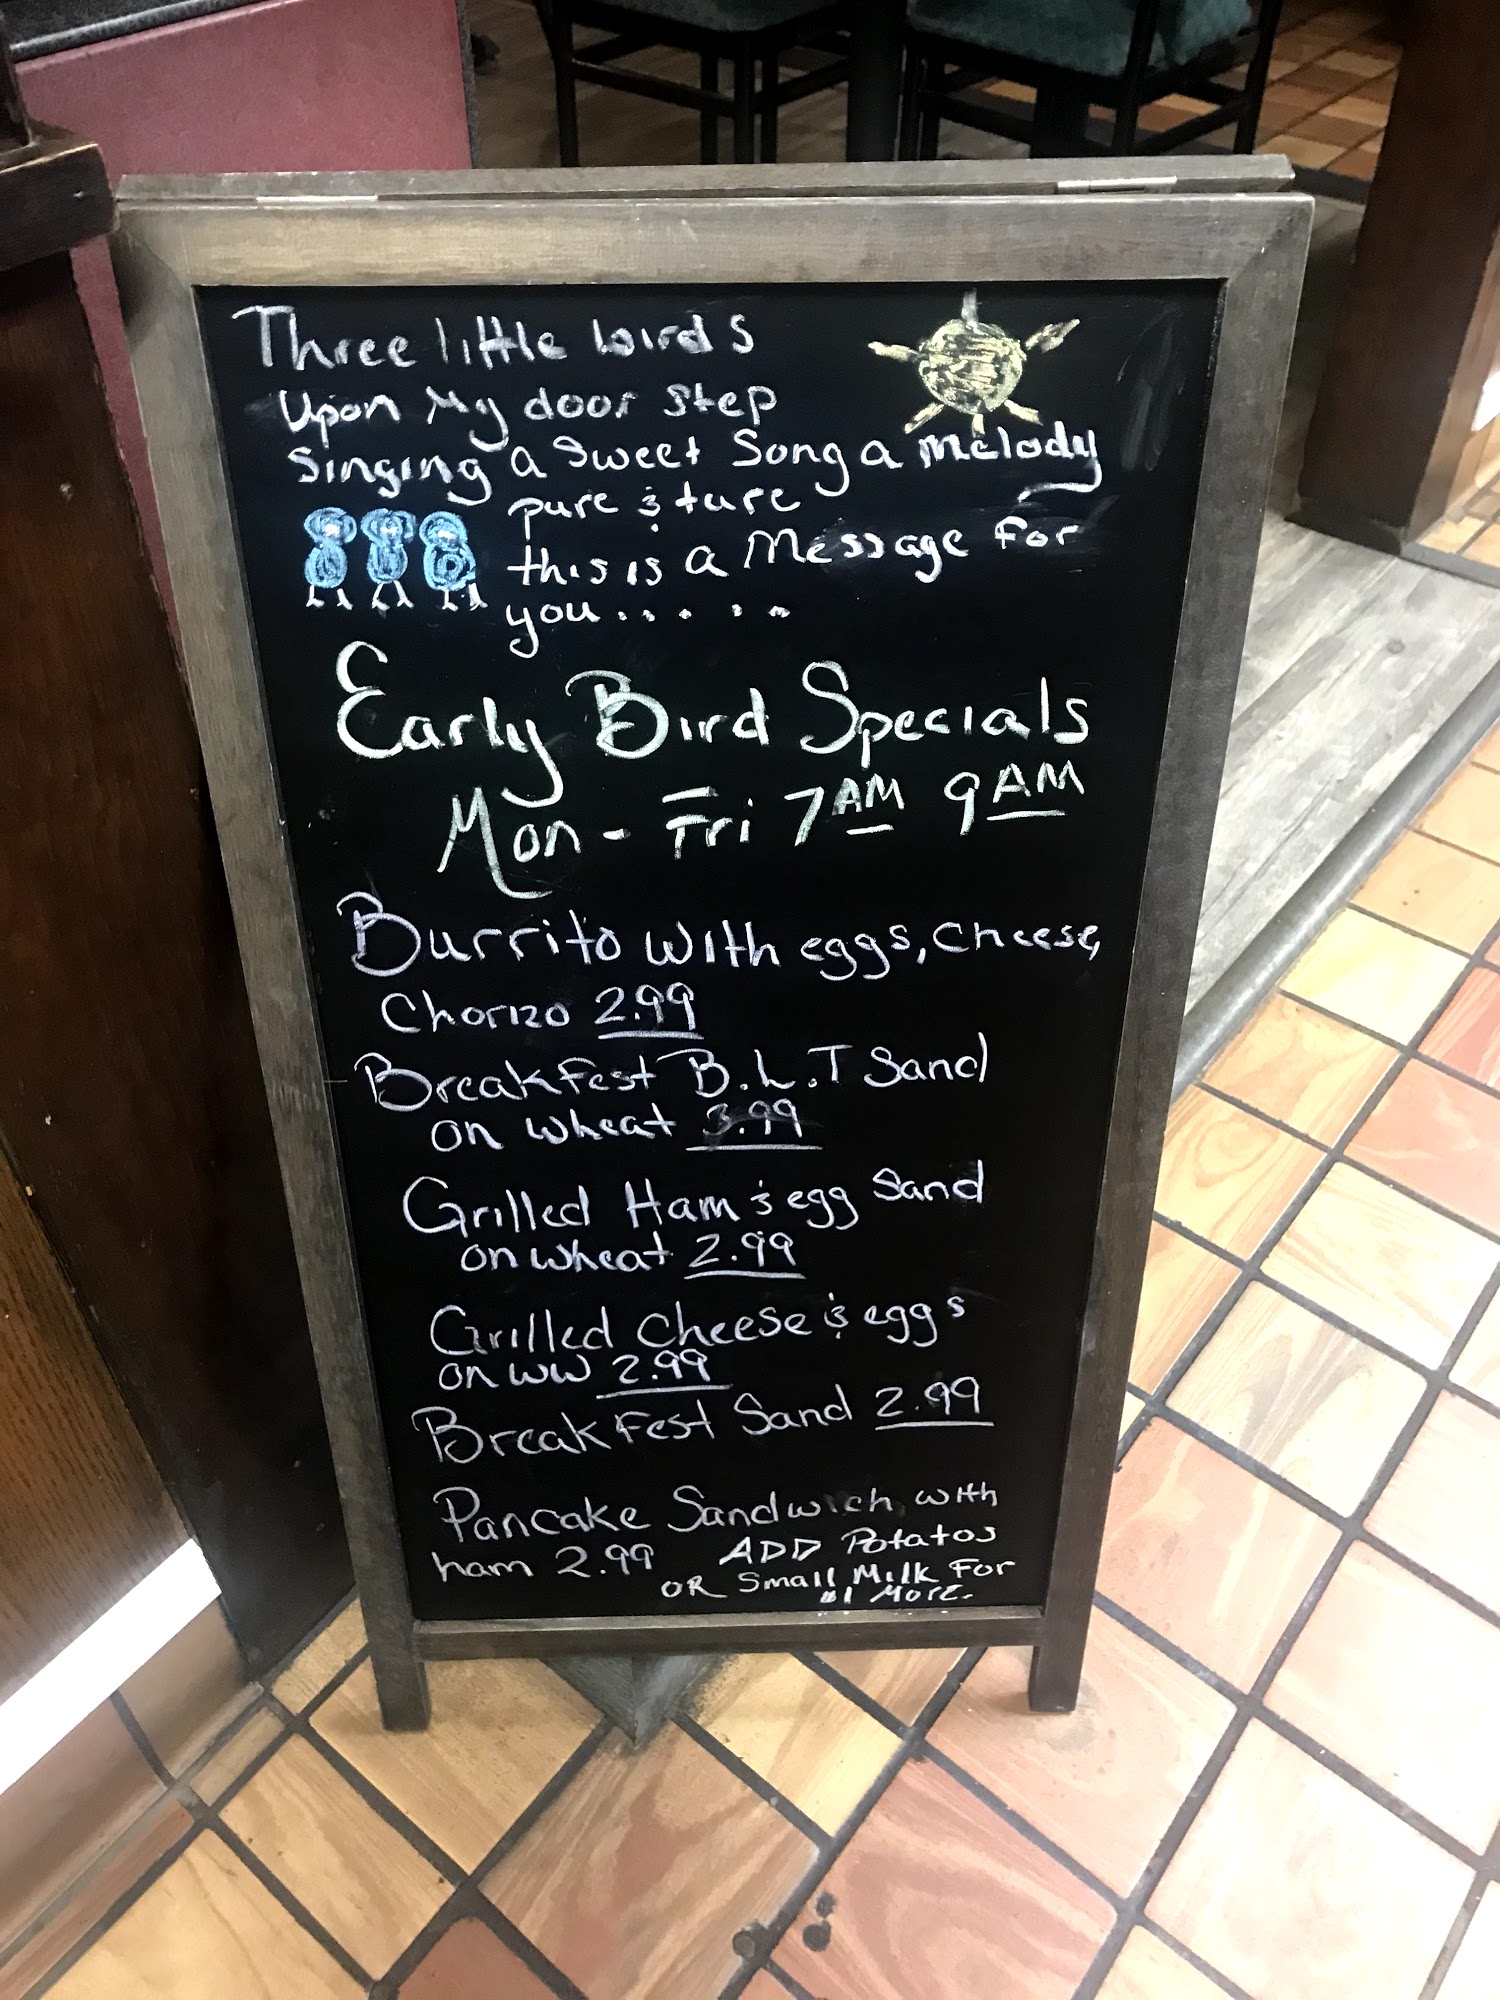 Three little birds
Upon My door step
singing a sweet song a melody
pure & ture
this is a Message for
you......
Early Bird Specials
Mon - Fri 7AM 9AM
Burrito with eggs, cheese,
Chorizo 2.99
Breakfest B.L.T Sand
on wheat 3.99
Grilled Ham & egg Sand
on wheat 2.99
Grilled cheese & eggs
on WW 2.99
Breakfest Sand 2.99
Pancake Sandwich with
ham 2.99 ADD Potatos
OR Small Milk For
$1 More.